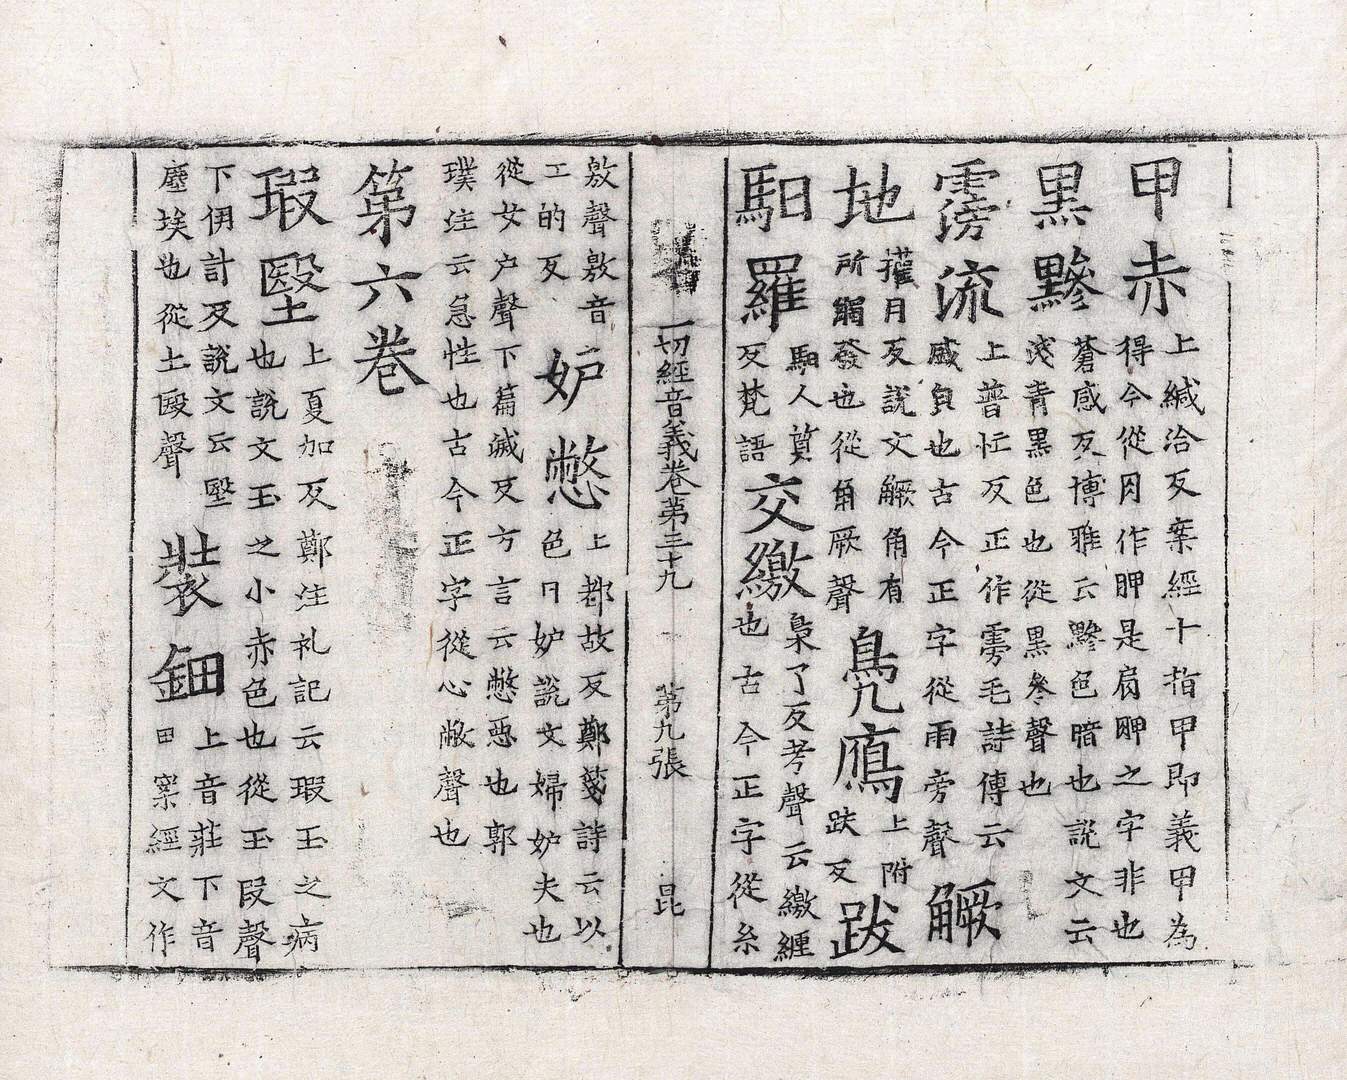 甲赤上緘洽反案經十指甲即義甲為
得今從月作胛是肩胛之字非也
黒黲蒼感反博雅云黲色暗也説文云
淺青黒色也從黒參聲也
霶流上普忙反正作雱毛詩傳云
盛皃也古今正字從雨旁聲觼
地㩴月反説文觼角有
所觸發也從角厥聲鳬鴈上附
趺反跋
馹羅馹人質
反梵語交繳梟了反考聲云繳纏
也古今正字從糸
一切經音義卷第三十九 第九張 昆
敫聲敫音
工的反妒憋上都故反鄭箋詩云以
色曰妒説文婦妒夫也
從女户聲下篇滅反方言云憋惡也郭
璞注云急性也古今正字從心敝聲也
第六卷
瑕壂上夏加反鄭注礼記云瑕玉之病
也説文玉之小赤色也從玉叚聲
下伊計反説文云壂
塵埃也從土殹聲裝鈿上音莊下音
田案經文作